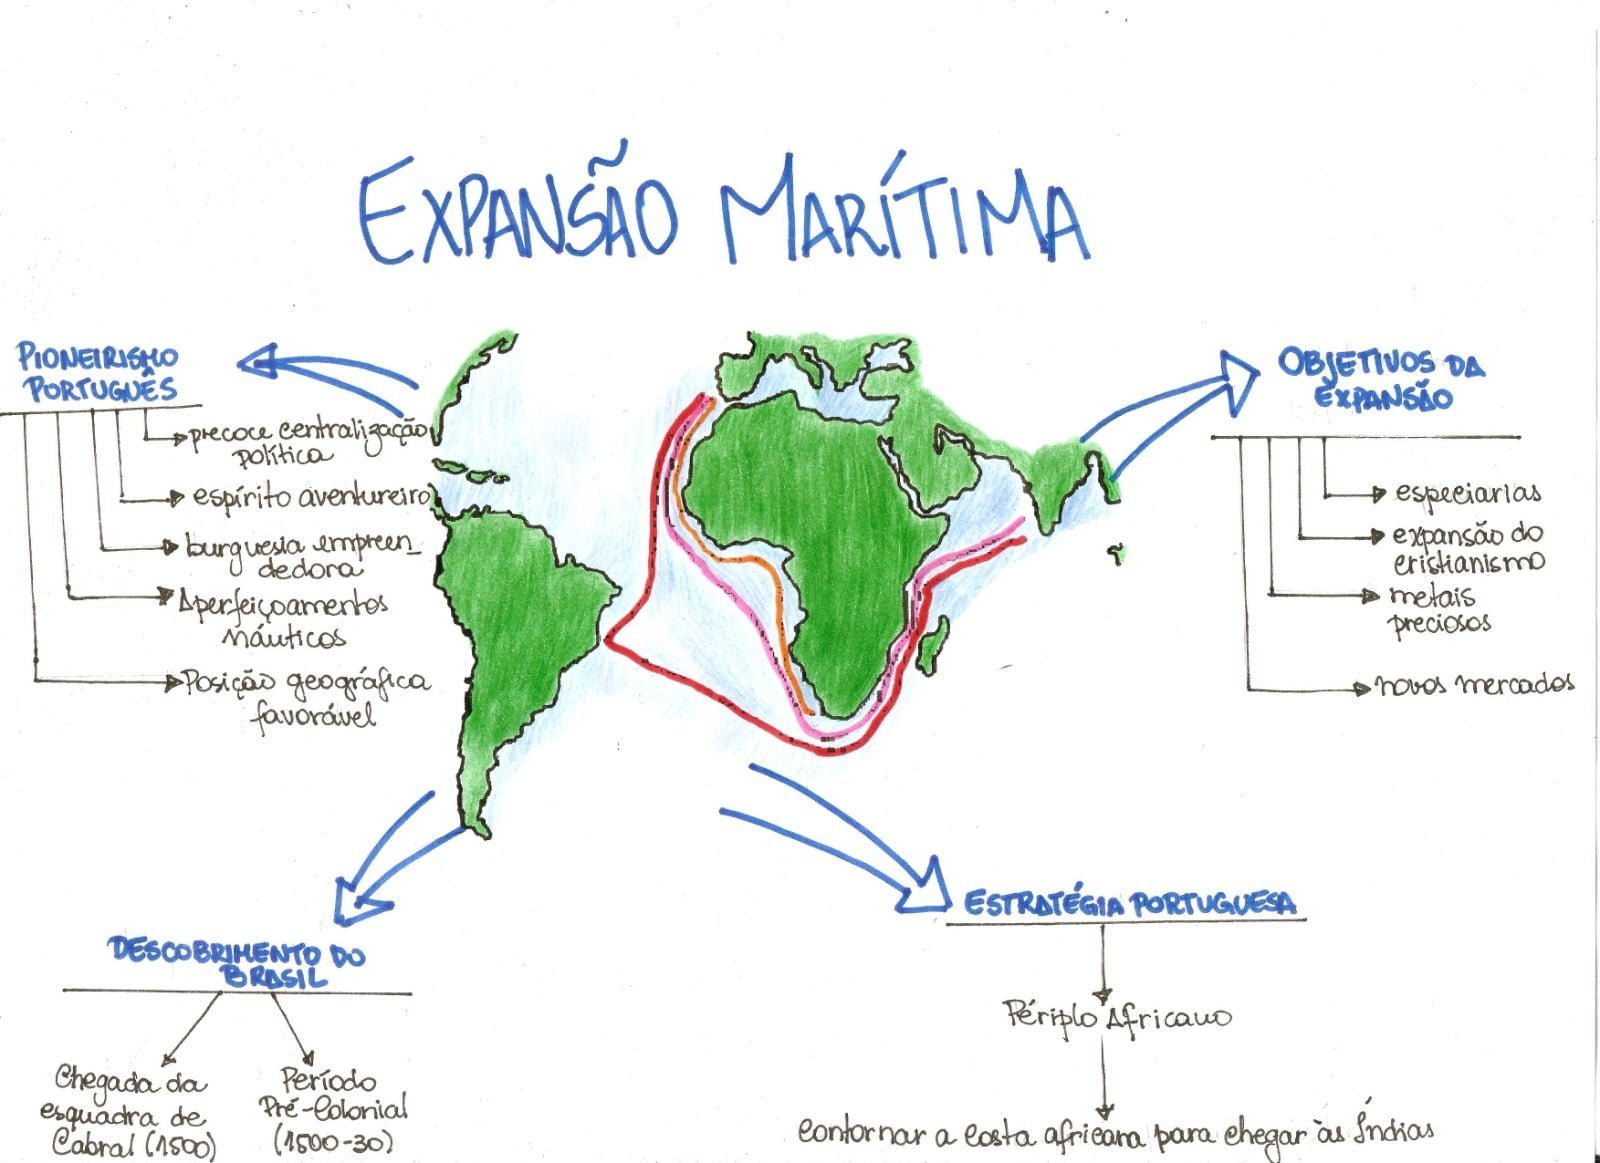 EXPANSÃO MARÍTIMA
PIONEIRISMO
PORTUGUÊS
precoce centralização
política
espírito aventureiro
burguesia empreen_
dedora
Aperfeiçoamentos
náuticos
Posição geográfica
favorável
OBJETIVOS DA
EXPANSÃO
especiarias
expansão do
cristianismo
metais
preciosos
novos mercados
DESCOBRIMENTO DO
BRASIL
Chegada da
esquadra de
Cabral (1500)
Período
Pré-Colonial
(1500-30)
ESTRATÉGIA PORTUGUESA
Périplo Africano
contornar a costa africana para chegar às Índias